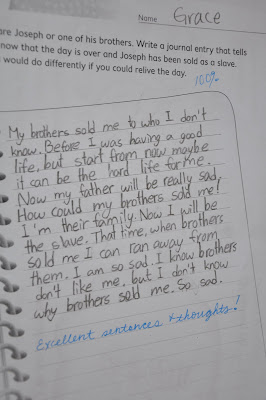 Name Grace
are Joseph or one of his brothers. Write a journal entry that tells
now that the day is over and Joseph has been sold as a slave.
would do differently if you could relive the day.
100%
My brothers sold me to who I don't
know. Before I was having a good
life, but start from now maybe
it can be the hard life for me.
Now my father will be really sad.
How could my brothers sold me!
I'm their family. Now I will be
the slave. That time, when brothers
sold me I can ran away from
them. I am so sad. I know brothers
don't like me, but I don't know
why brothers sold me. So sad.
Excellent sentences + thoughts!